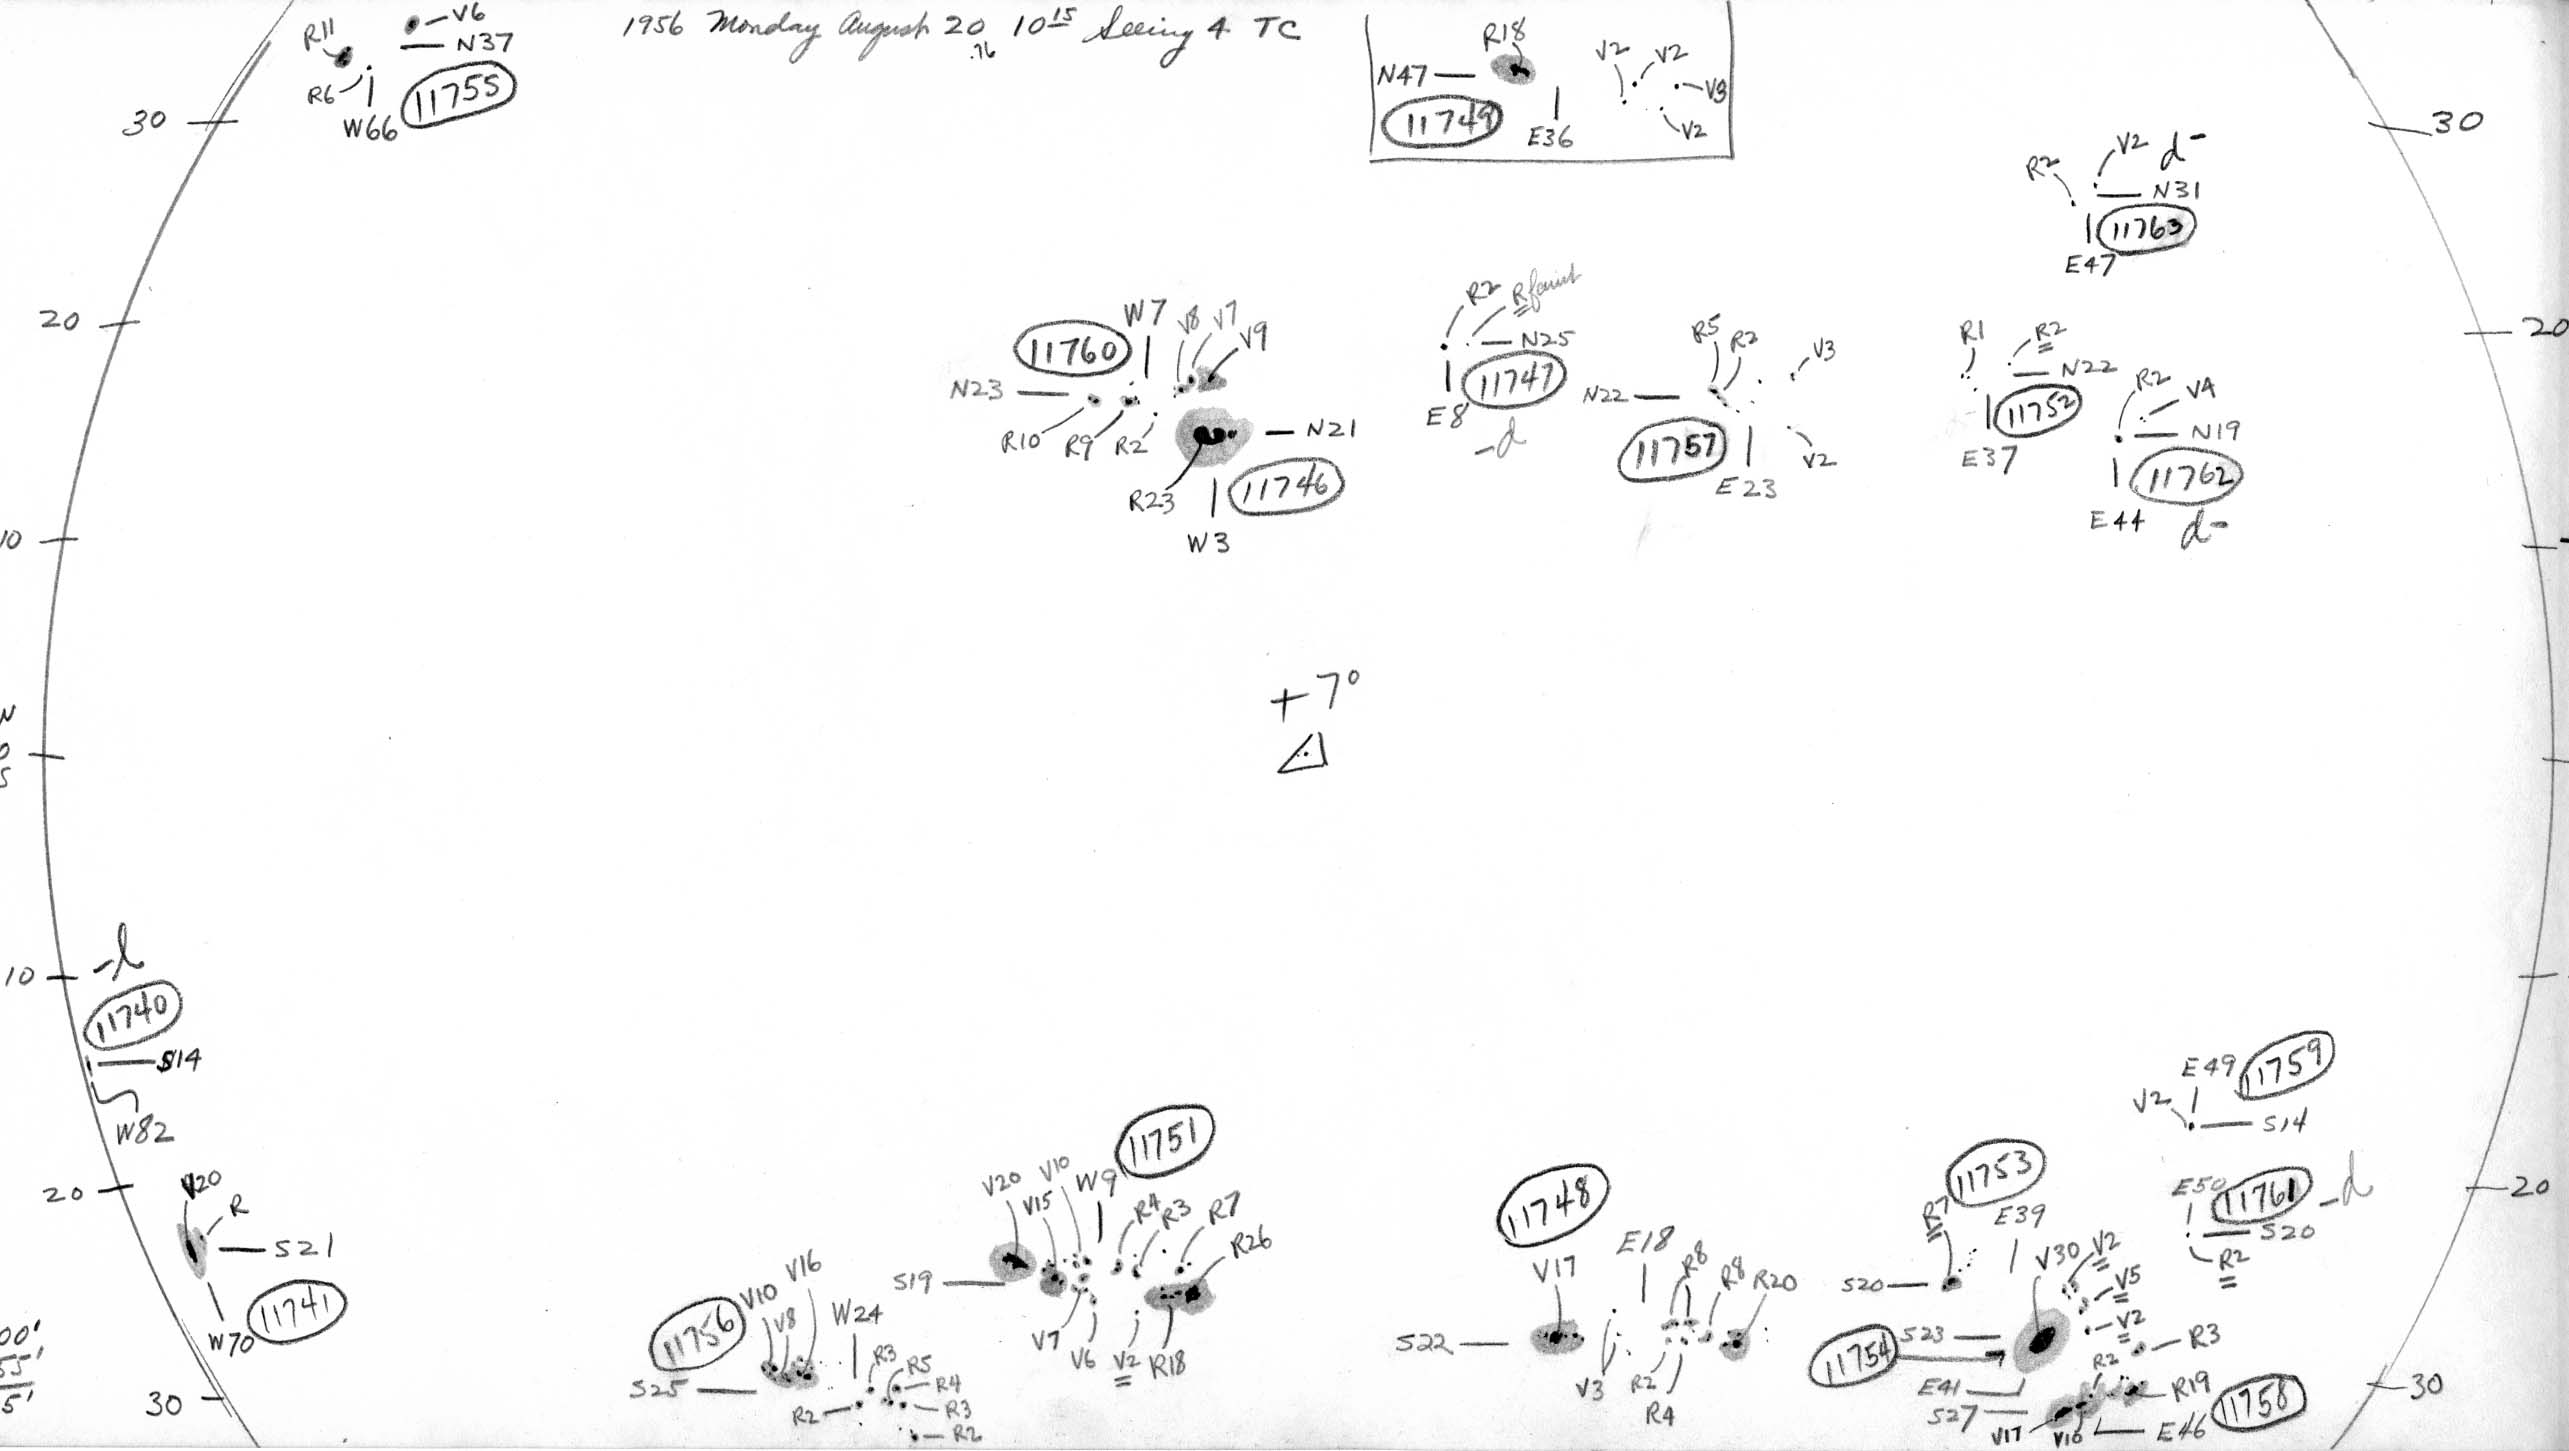 1956 Monday August 20 10 15 Seeing 4 TC
.76
R11
V6
N37
R6
11755
W66
30
R18
V2
V2
N47
V3
11749
E36
V2
30
R2
V2 d-
N31
11763
E47
20
W7
V8
V7
V9
11760
N23
R10
R9
R2
N21
R23
11746
W3
R2
R faint
N25
11747
E8
-d
R5
R2
V3
N22
11757
V2
E23
R1
R2
N22
11752
E37
R2
V4
N19
11762
E44
d-
20
10
+7°
N
0
S
10
-l
11740
S14
W82
20
V20
R
S21
11741
W70
00'
55'
5'
30
11756
V10
V8
V16
W24
S25
R3
R5
R4
R2
R3
R2
11751
V20
V15
V10
W9
R4
R3
R7
R26
S19
V7
V6
V2
R18
11748
V17
E18
R8
R8
R20
S22
V3
R2
R4
E49
11759
V2
S14
11753
R7
E39
S20
E50
11761
-d
S20
R2
20
V30
V2
V5
V2
S23
11754
R3
R2
E41
R19
S27
V17
V16
E46
11758
30